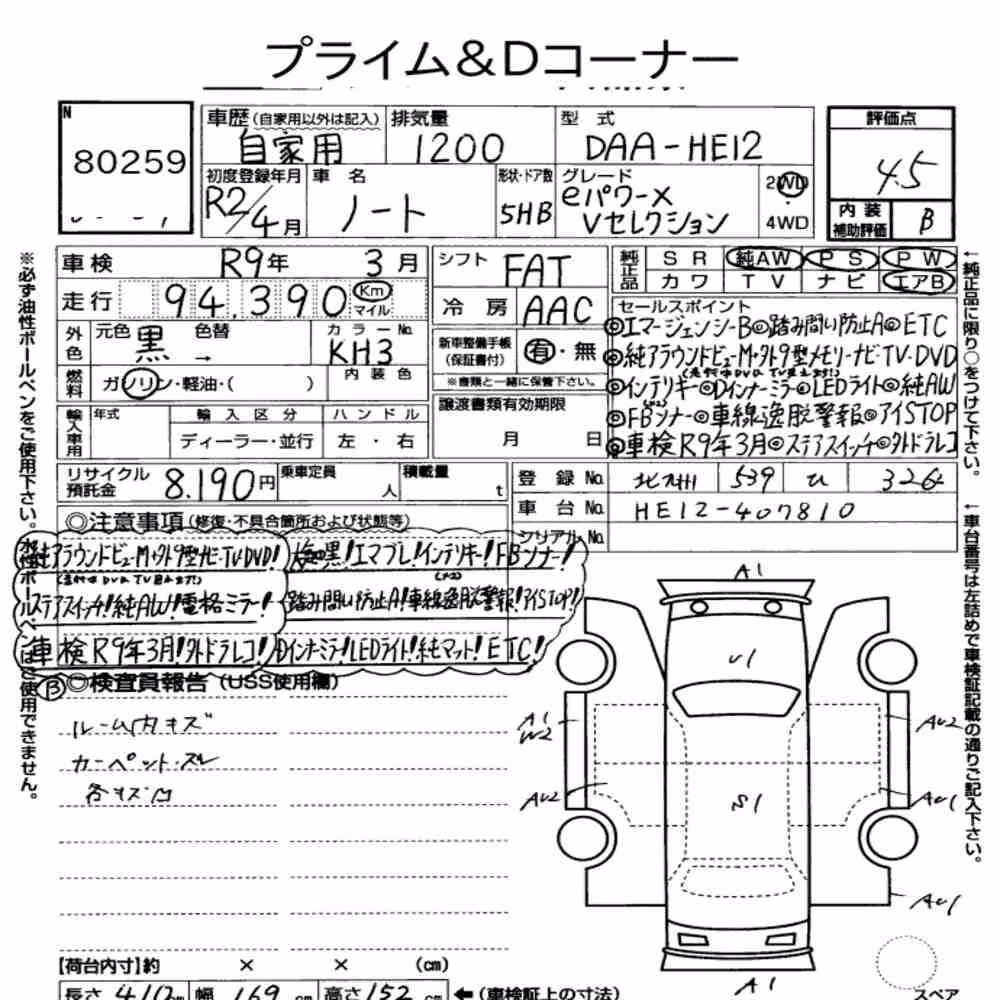 プライム&Dコーナー
N
80259
車歴 (自家用以外は記入)
自家用
排気量
1200
型式
DAA-HE12
評価点
4.5
初度登録年月
R2/4月
車名
ノート
形状・ドア数
5HB
グレード
eパワーX
Vセレクション
2WD
4WD
内装
補助評価
B
※必ず油性ボールペンをご使用下さい。
水性ボールペンはご使用できません。
車検 R9年 3月
走行 94,390 Km マイル
外色
元色 黒 色替 →
カラーNo. KH3
燃料 ガソリン・軽油・( )
内装色
輸入車用
年式
輸入区分
ディーラー・並行
ハンドル
左・右
シフト FAT
冷房 AAC
新車整備手帳
(保証書付)
有・無
※書類と一緒に保管下さい。
譲渡書類有効期限
月 日
純正品
SR 純AW PS PW
カワ TV ナビ エアB
セールスポイント
◎エマージェンシーB◎踏み間い防止A◎ETC
◎純アラウンドビューM・外9型メモリーナビ・TV・DVD
◎インテリキー◎Dインナーミラー◎LEDライト◎純AW
◎FBソナー◎車線逸脱警報◎アイSTOP
◎車検R9年3月◎ステアスイッチ◎外ドラレコ
←純正品に限り○をつけて下さい。
リサイクル
預託金
8.190円
乗車定員 人
積載量 t
登録No. 北九州 539 ひ 326
車台No. HE12-407810
シリアルNo.
←車台番号は左詰めで車検証記載の通りご記入下さい。
◎注意事項 (修復・不具合箇所および状態等)
純アラウンドビューM・外9型ナビ・TV・DVD!
ステアスイッチ!純AW!電格ミラー!
車検R9年3月!外ドラレコ!
黒!エマブレ!インテリキー!FBソナー!
踏み間い防止A!車線逸脱警報!アイSTOP!
Dインナーミラー!LEDライト!純マット!ETC!
B
◎検査員報告 (USS使用欄)
ルーム内キズ
カーペット・スレ
各キズ凹
A1
U1
A1
W2
AU2
AU2
S1
AU1
AU1
A1
スペア
【荷台内寸】約 × × (cm)
長さ 410cm 幅 169cm 高さ152cm ←(車検証上の寸法)